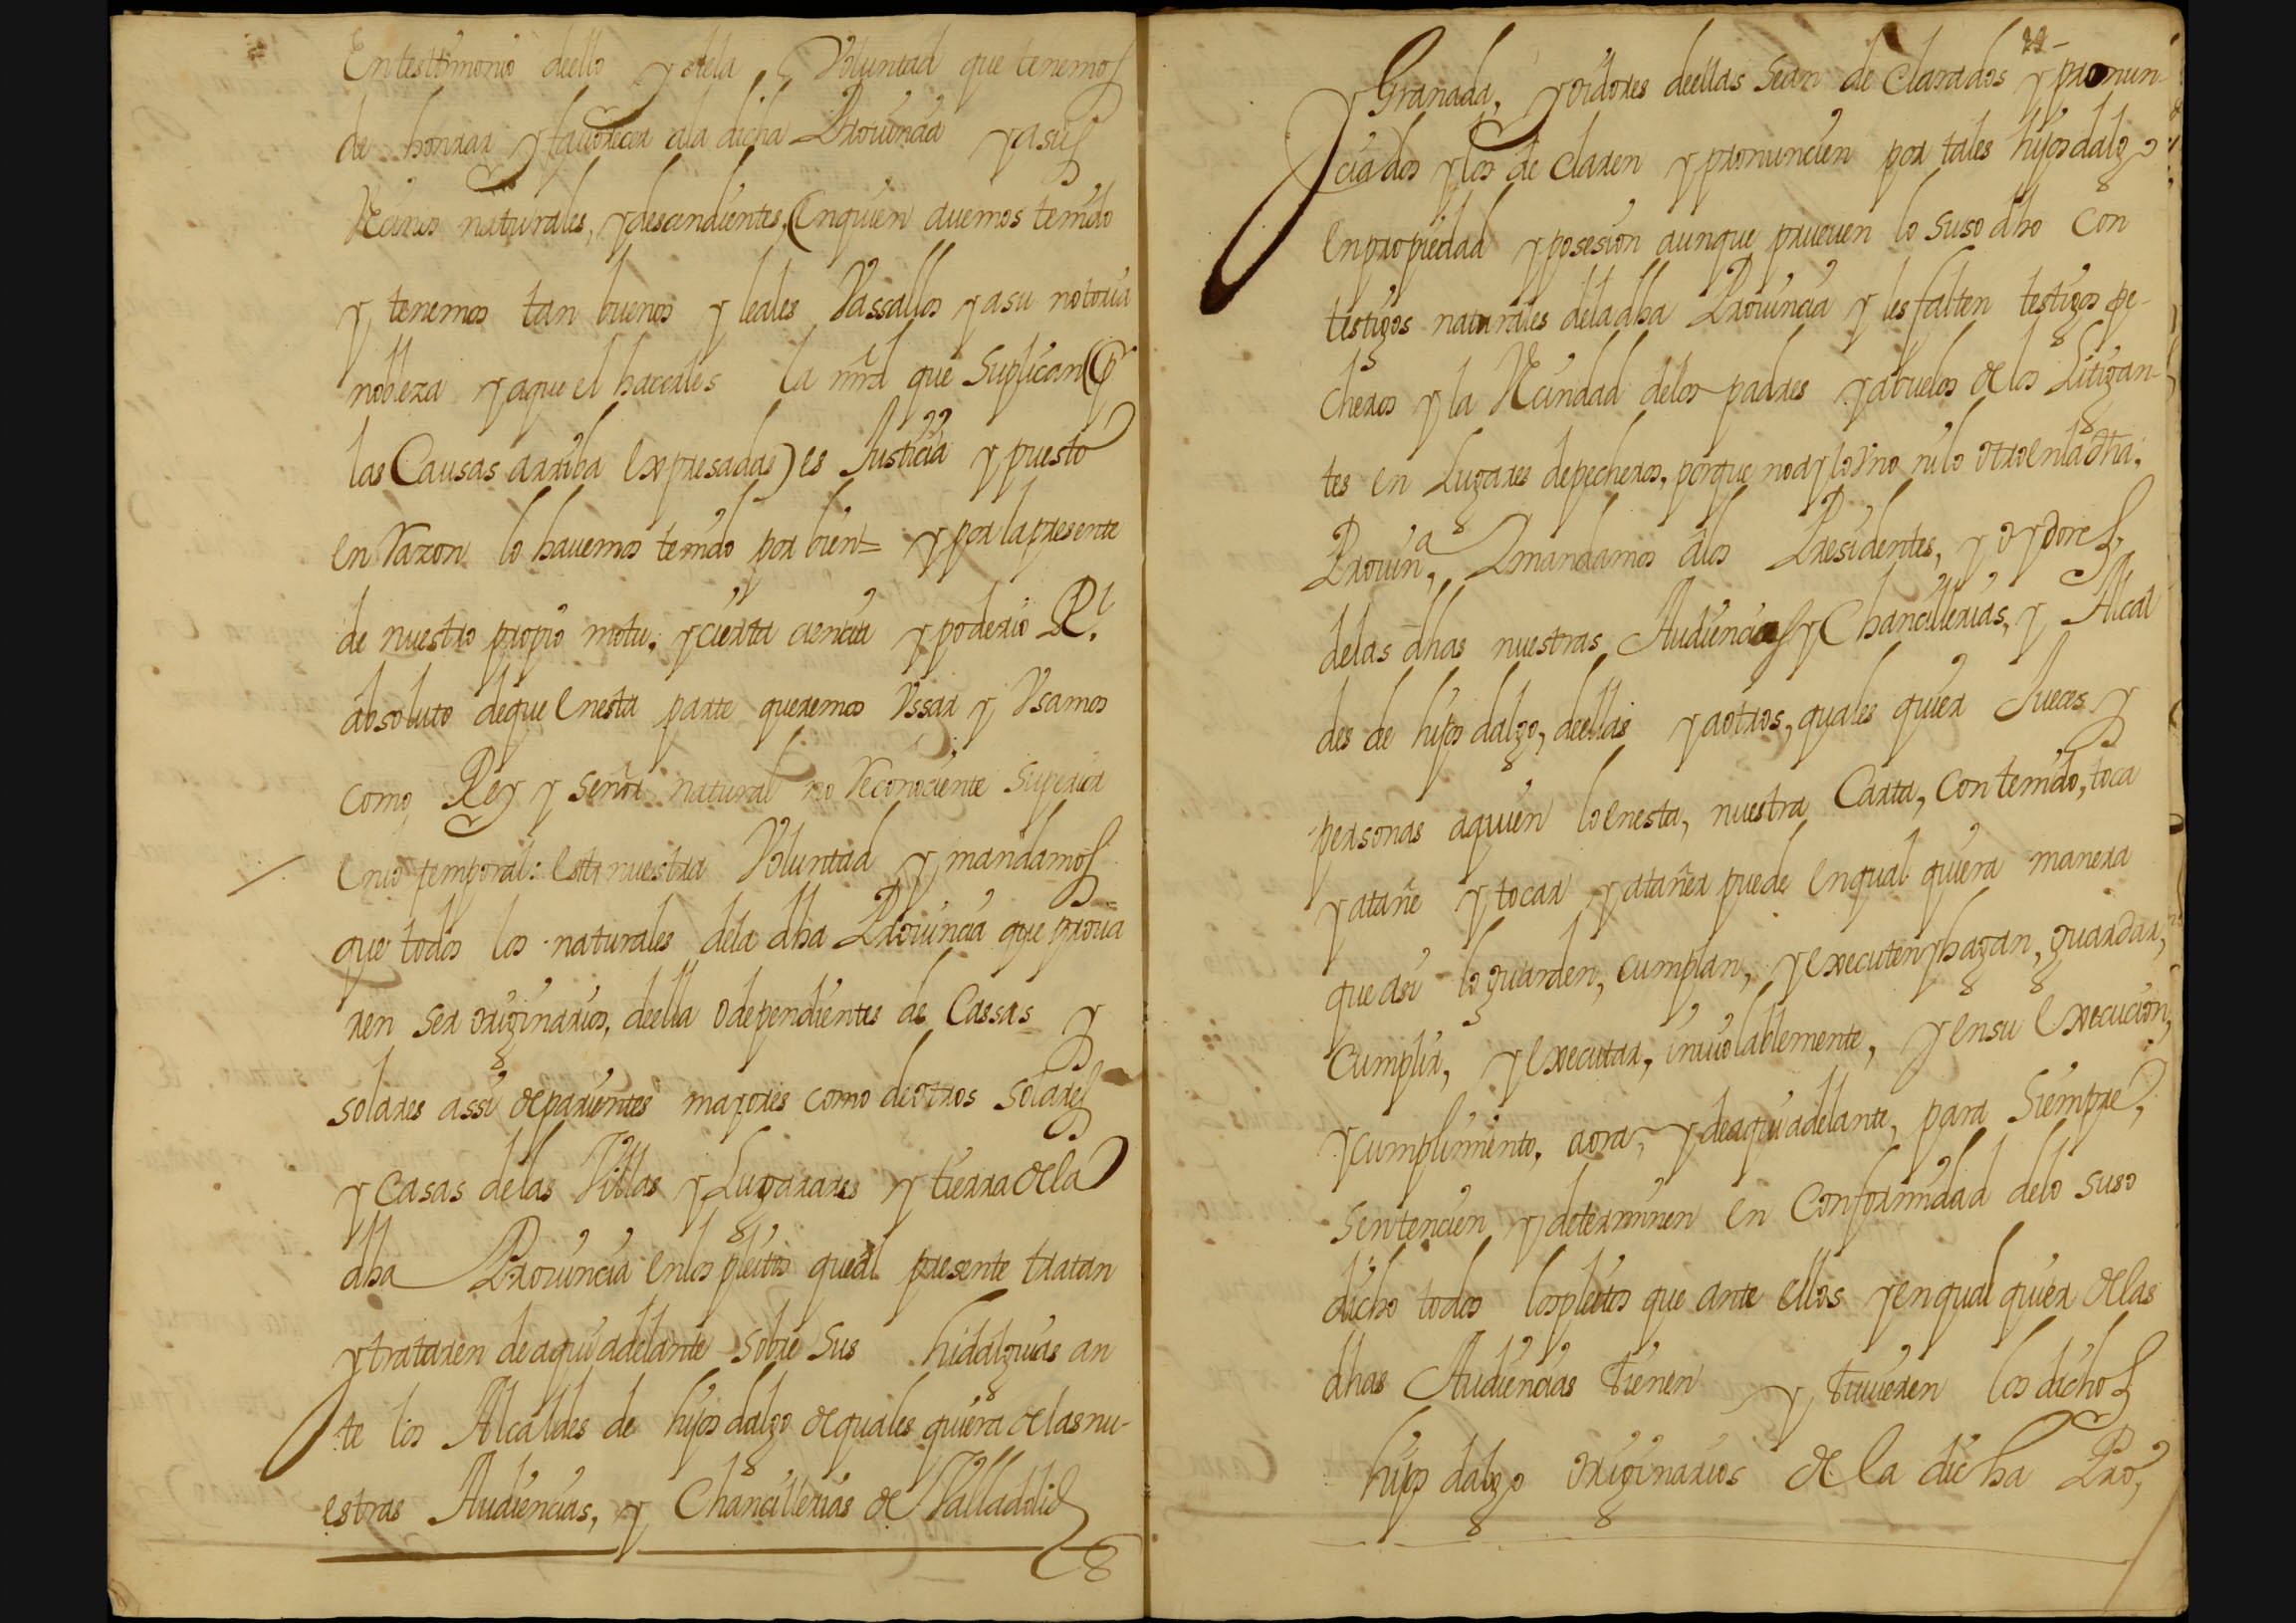 En testtimonio deello y dela Voluntad que tenemos
de honrar y fauorecer ala dicha Prouincia y asus
Vecinos naturales, y descendientes, (en quien auemos tenido
y tenemos tan buenos y leales Vassallos y asu notoria
nobleza y aque el hacerles la mrd que Suplican (p.r
las Causas arriba expresadas) es Justicia y puesto
en Razon lo hauemos tenido por bien = y por la presente
de nuestro propio motu. y cierta ciencia y poderio Rl.
absoluto deque enesta parte queremos Vssar y Vsamos
como Rey y señor natural no Reconociente Superior
enlo temporal: Esta nuestra Voluntad y mandamos
que todos los naturales dela dha Prouincia que proua
ren ser originarios, deella o dependientes de Cassas y
solares assi de parientes mayores como deotros solares
y casas delas Villas y Lugarares y tierra dela
dha Prouincia enlos pleitos queal presente tratan
y trataren de aqui adelante sobre sus hidalguias an
te los Alcaldes de hijos dalgo de quales quiera de las nu-
estras Audiencias, y Chancillerias de Valladolid
22-
y Granada, y oidores deellas Sean de Clarados y pronun-
ciados y los de Claren y pronuncien por tales hijos dalgo
en propiedad y posesion aunque prueuen lo suso dho con
testigos naturales dela dha Prouincia y les falten testigos pe-
cheros y la Vecindad delos padres y abuelos de los Litigan-
tes en Lugares depecheros, porque no ay lo vno ni lo otro en la dha.
Prouin.a Imandamos alos Presidentes, y oydores,
delas dhas nuestras Audiencias y Chancillerias, y Alcal
des de hijos dalgo, deellas y aotros, quales quier Jueces y
personas aquien lo enesta, nuestra Carta, contenido, toca
y atañe y tocar y atañer puede en qual quiera manera
que asi lo guarden, cumplan, y executen y hagan, guardar,
cumplir, y executar, inuiolablemente, y ensu execucion,
y cumplimiento, aora, y deaqui adelante, para Siempre,
sentencien y determinen en Conformidad delo suso
dicho todos los pleitos que ante ellos y en qual quier de las
dhas Audiencias tienen y tuuieren los dichos
hijos dalgo originarios de la dicha Pro,